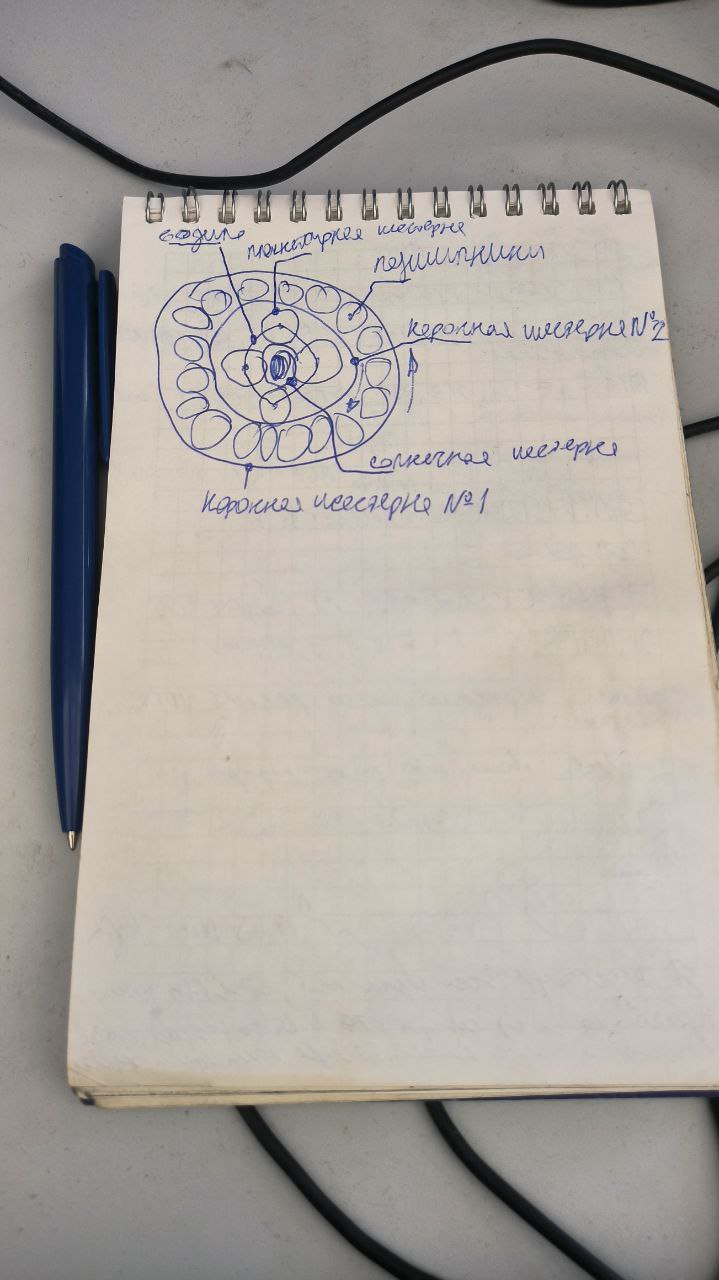 водило
планетарная шестерня
подшипники
коронная шестерня №2
солнечная шестерня
коронная шестерня №1